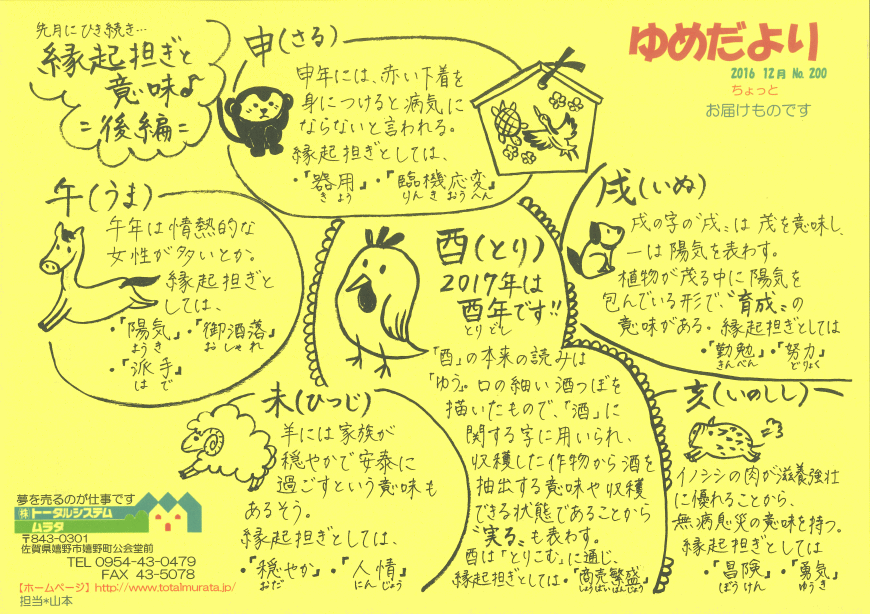 先月にひき続き…
縁起担ぎと
意味♪
=後編=
ゆめだより
2016 12月 No. 200
ちょっと
お届けものです
申(さる)
申年には、赤い下着を
身につけると病気に
ならないと言われる。
縁起担ぎとしては、
・『器用』・『臨機応変』
きよう りんきおうへん
午(うま)
午年は情熱的な
女性が多いとか。
縁起担ぎと
しては、
・『陽気』・『御洒落』
ようき おしゃれ
・『派手』
はで
酉(とり)
2017年は
酉年です!!
とりどし
「酉」の本来の読みは
「ゆう」。口の細い酒つぼを
描いたもので、「酒」に
関する字に用いられ、
収穫した作物から酒を
抽出する意味や収穫
できる状態であることから
〝実る〟も表わす。
酉は「とりこむ」に通じ、
縁起担ぎとしては・『商売繁盛』
しょうばいはんじょう
戌(いぬ)
戌の字の〝戊〟は茂を意味し、
一は陽気を表わす。
植物が茂る中に陽気を
包んでいる形で、〝育成〟の
意味がある。縁起担ぎとしては
・『勤勉』・『努力』
きんべん どりょく
未(ひつじ)
羊には家族が
穏やかで安泰に
過ごすという意味も
あるそう。
縁起担ぎとしては、
・『穏やか』・『人情』
おだ にんじょう
亥(いのしし)
イノシシの肉が滋養強壮
に優れることから、
無病息災の意味を持つ。
縁起担ぎとしては
・『冒険』・『勇気』
ぼうけん ゆうき
夢を売るのが仕事です
㈱トータルシステム
ムラタ
〒843-0301
佐賀県嬉野市嬉野町公会堂前
TEL 0954-43-0479
FAX 43-5078
【ホームページ】http://www.totalmurata.jp/
担当*山本